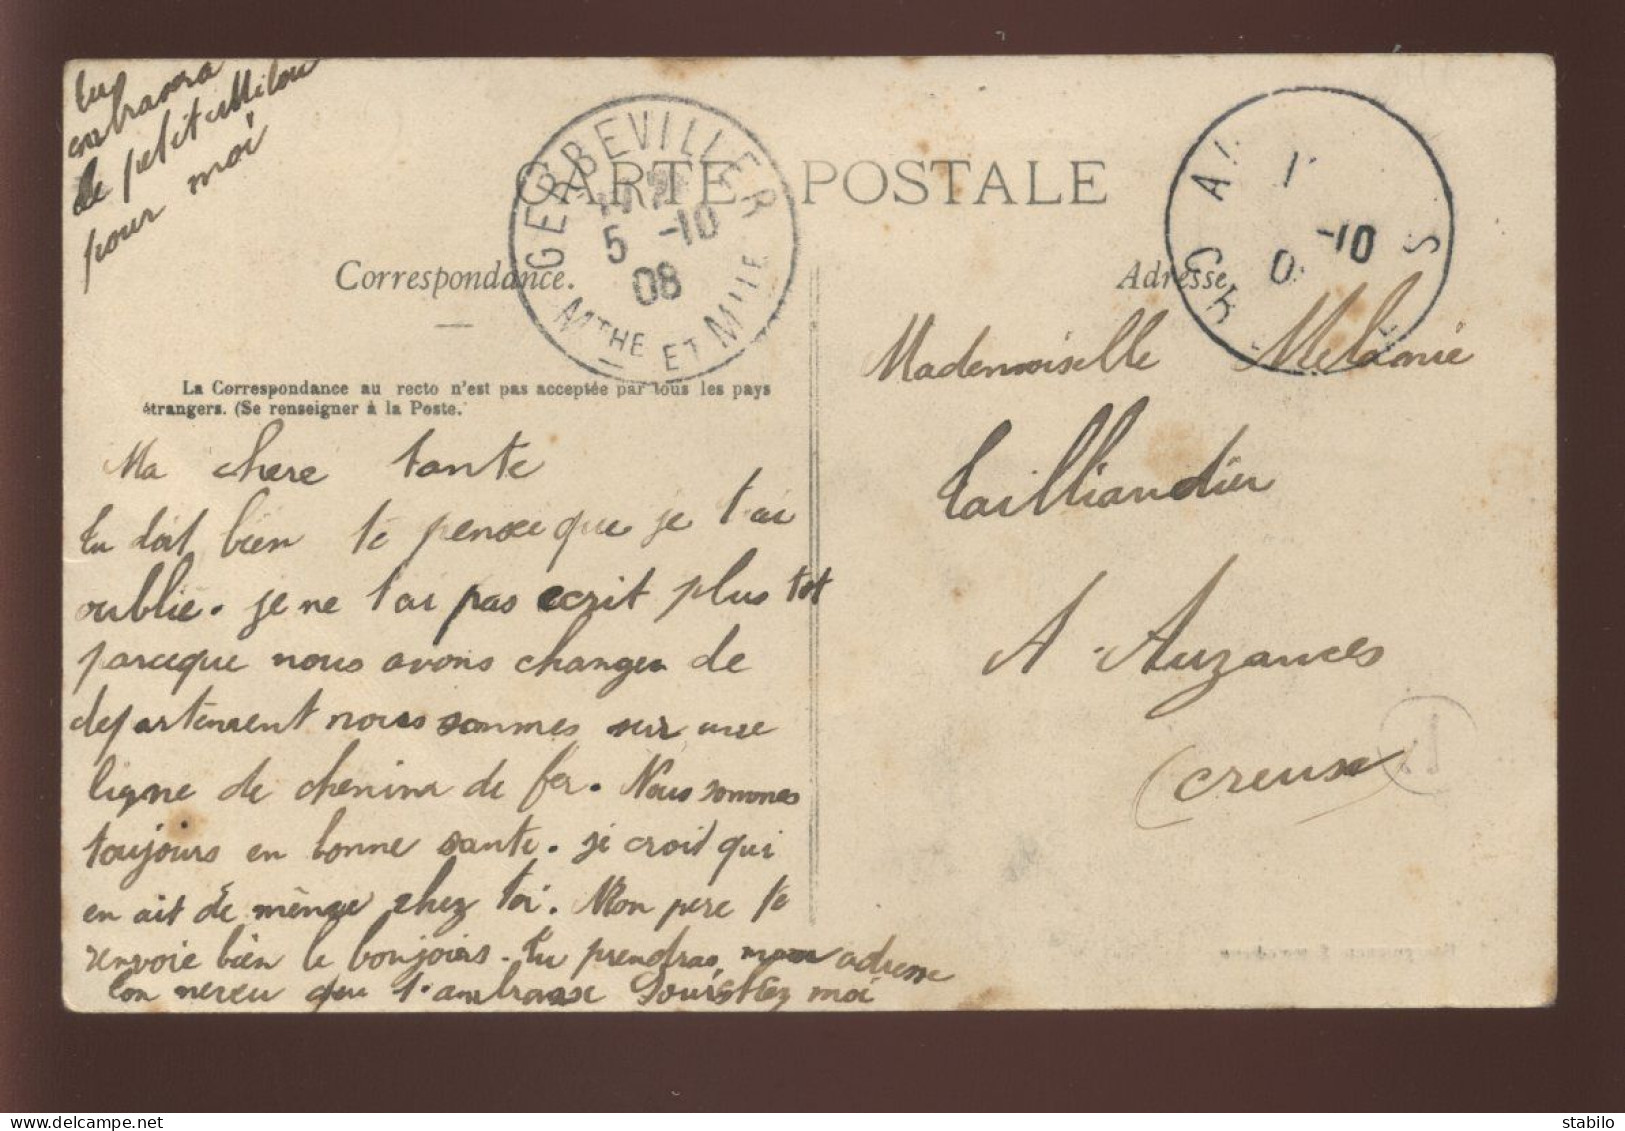 Tu
embrasera
le petit Milou
pour moi
CARTE POSTALE
GERBEVILLER
5 -10
08
MTHE ET MLLE
-10
Correspondance.
Adresse
La Correspondance au recto n'est pas acceptée par tous les pays
étrangers. (Se renseigner à la Poste.
Ma chere tante
tu doit bien te pensee que je t'ai
oublié. je ne t'ai pas ecrit plus tot
parceque nous avons changer de
departement nous sommes sur une
ligne de chemim de fer. Nous sommes
toujours en bonne sante. je croit qui
en ait de même chez toi. Mon pere te
renvoie bien le bonjours. tu prendras mon adresse
ton neveu qui t'ambrasse chez moi
Mademoiselle Melanie
Tailliandier
A Auzances
(Creuse)
delcampe.net
stabylo